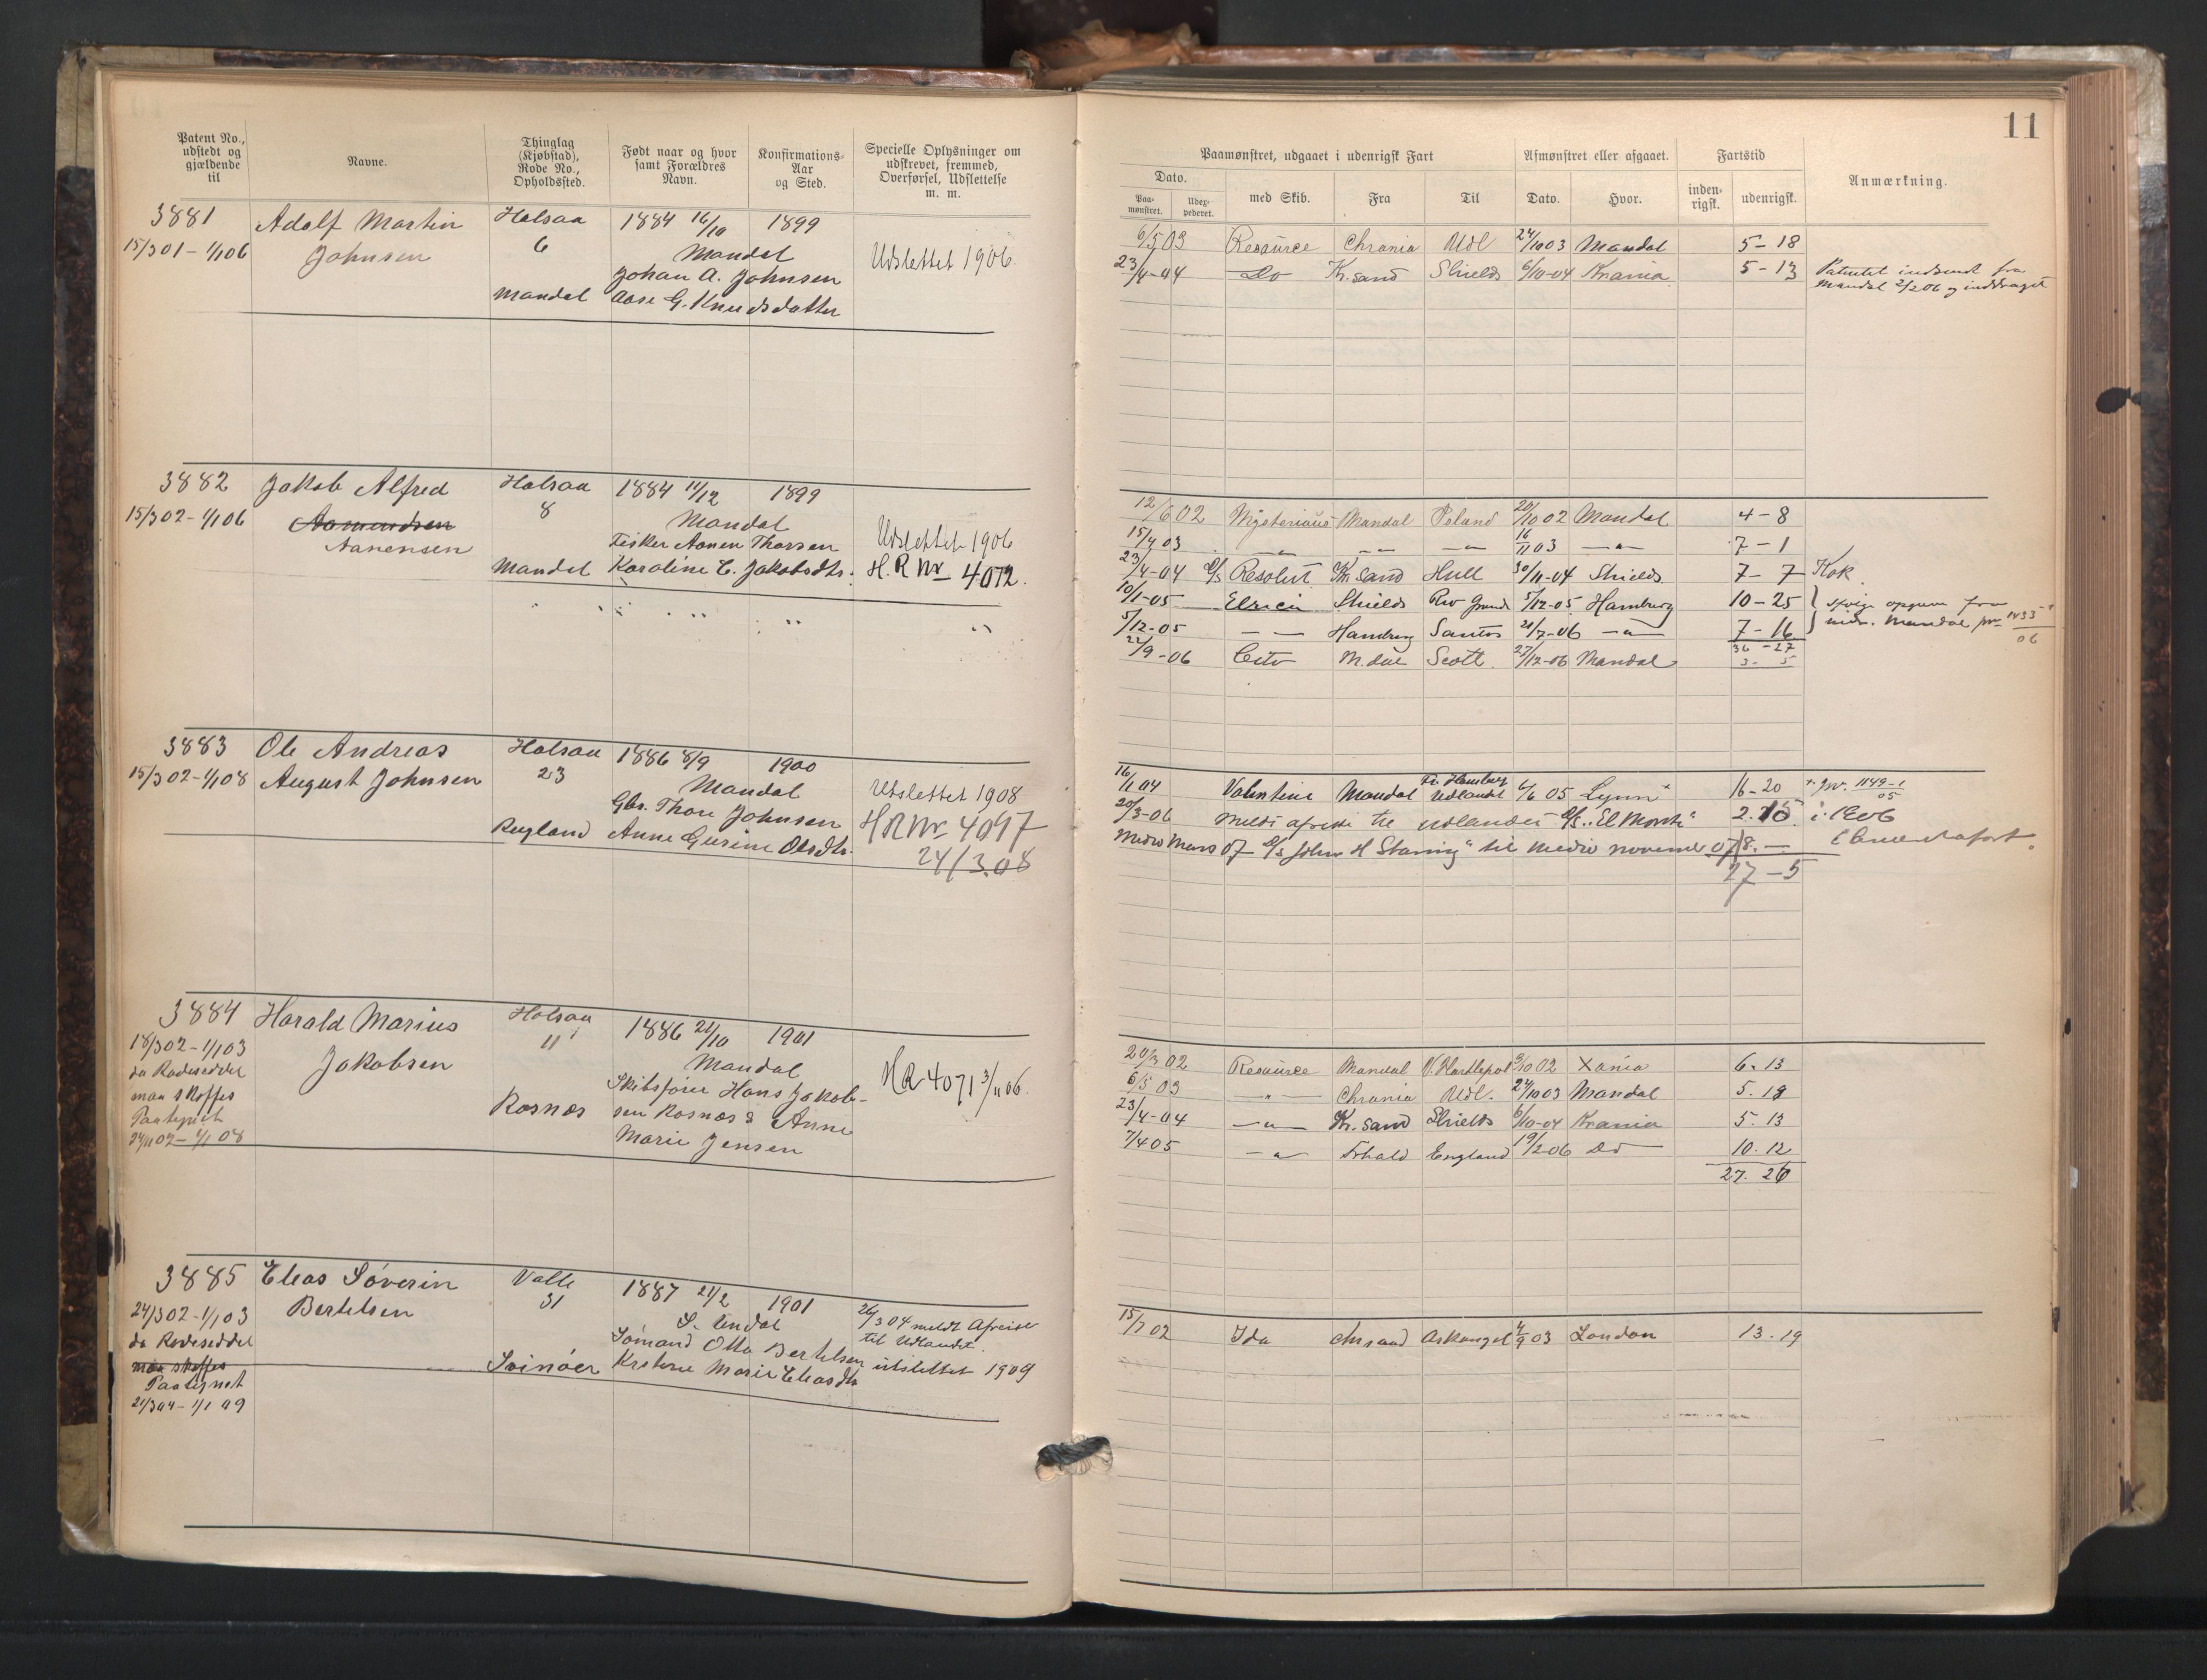 11
Patent No., udstedt og gjældende til
Navne.
Thinglag (Kjøbstad), Rode No., Opholdssted.
Født naar og hvor samt Forældres Navn.
Konfirmations-Aar og Sted.
Specielle Oplysninger om udskrevet, fremmed, Overførsel, Udslettelse m. m.
Paamønstret, udgaaet i udenrigsk Fart
Afmønstret eller afgaaet.
Fartstid
Anmærkning.
Dato.
Paa-mønstret.
Udex-pederet.
med Skib.
Fra
Til
Dato.
Hvor.
inden-rigsk.
udenrigsk.
3881 Adolf Martin Halsaa 1884 16/10 1899
15/3 01 - 1/1 06 Johnsen 6 Mandal Udslettet 1906.
Johan A. Johnsen
Mandal Aase G. Knudsdatter
6/5 03 Resource Chrania Udl 24/10 03 Mandal 5-18
23/4-04 Do Kr.sand Shields 6/10-04 Krania 5-13 Patentet indsendt fra
Mandal 2/2 06 og inddraget
3882 Jakob Alfred Halsaa 1884 11/12 1899
15/3 02 - 1/1 06 Aamundsen 8 Mandal
Aanensen Fisker Aanen Thorsen Udslettet 1906
Mandal Karoline E. Jakobsdtr. H.R Nr 4072.
12/6 02 Mysterious Mandal Island 20/10 02 Mandal 4-8
15/4 03 -"- -"- -"- 16/11 03 -"- 7-1
23/4-04 D/S Resolut Kr.sand Hull 30/11-04 Shields 7-7 Kok.
10/1-05 Elricia Shields Rio Grande 5/12-05 Hamburg 10-25
5/12-05 - - Hamburg Santos 21/7-06 -"- 7-16 Mandal 1433/06
36-27
22/9-06 Cito M.dal Scott. 27/12-06 Mandal 3-5
3883 Ole Andreas Halsaa 1886 8/9 1900
15/3 02 - 1/1 08 August Johnsen 23 Mandal Udslettet 1908
Gbr. Thore Johnsen HRNr 4097
Rugland Anne Gurine Olsdtr. 24/3.08
16/1 04 Valentine Mandal Fr. Hamburg Udlandet 6/6 05 Lynn 16-20 + Jnr. 1149-1/05
20/3-06 meldt afreist til udlandet D/S "El Monte" 2.15 i 1906
Medio Mars 07 D/S John H Starring" til Medio november 07 8.-
27-5
3884 Harald Marius Halsaa 1886 21/10 1901
18/3 02 - 1/1 03 Jakobsen 11 Mandal
da Rodeseddel Skibsfører Hans Jakob- HR 4071 3/11 06.
maa skaffes Rosnæs sen Rosnæs & Anne
Paategnet Marie Jensen
24/11 02 - 1/1 08
20/3 02 Resource Mandal V. Hartlepol 9/10 02 Xania 6.13
6/5 03 -"- Chrania Udl. 24/10 03 Mandal 5.18
23/4-04 -"- Kr.sand Shields 6/10-04 Krania 5.13
7/4 05 -"- Frhald England 19/2-06 Do 10.12
27.26
3885 Elias Søverin Valle 1887 21/2 1901
24/3 02 - 1/1 03 Bertelsen 31 S. Undal 26/3 04 meldt Afreise
da Rodeseddel Sømand Otto Bertelsen til Udlandet.
maa skaffes Svinøer Kristine Marie Eliasdtr udslettet 1909
Paategnet
21/3 04 - 1/1 09
15/7 02 Ida Chrsand Arkangel 4/9 03 London 13.19